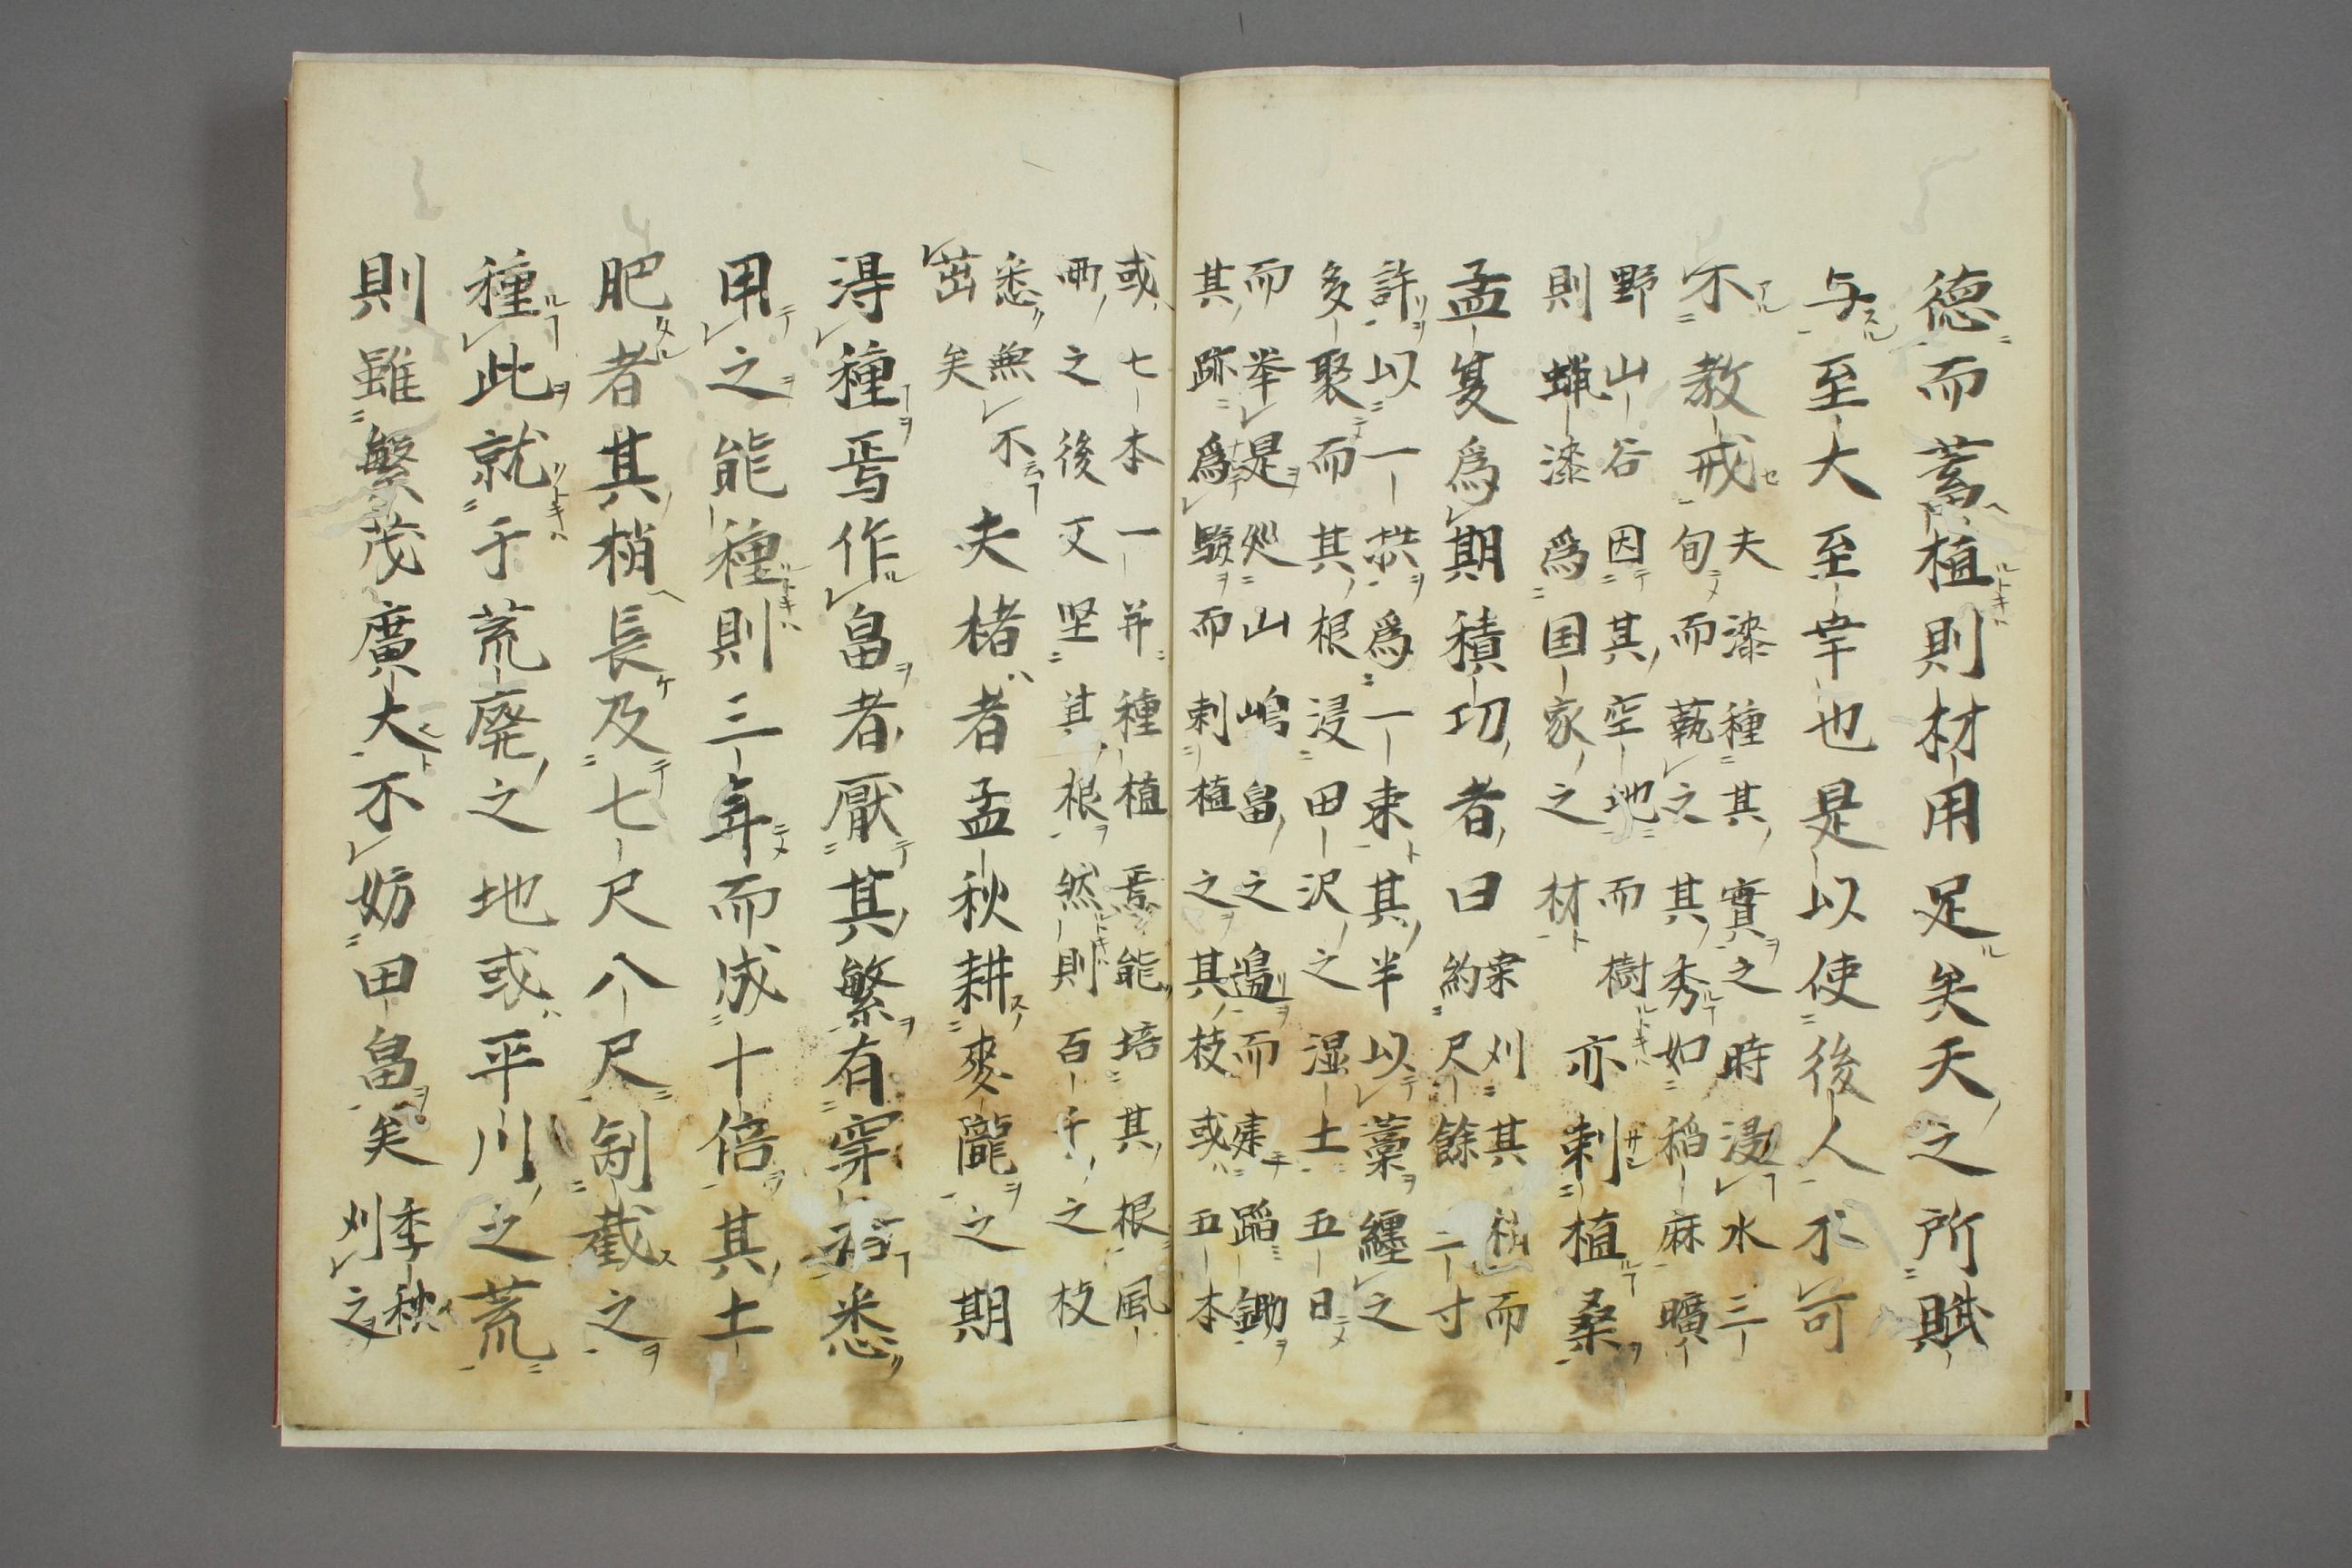 德而蓄植則材用足矣天之所賦
与至大至幸也是以使後人不可
不教戒
夫漆種其實之時浸水三
旬而蓺之其秀如稻麻曠
野山谷因其空地而樹
則蝋漆為国家之材
亦刺植桑
孟夏為期積功者曰
刈其 而
約尺餘二寸
許以一拱為一束其半以藁纏之
多聚而其根浸田沢之湿土五日
而挙是処山嶋畠之邉而建蹈鋤
其跡為驗而刺植之其枝或五本
或七本一并種植焉能培其根風
雨之後又坚其根然則百千之枝
悉無不
茁矣
夫楮者孟秋耕麥隴之期
淂種焉作畠者厭其繁有穿 悉
用之能種則三年而成十倍其土
肥者其梢長及七尺八尺刻截之
種此就于荒廃之地或平川之荒
則雖繁茂廣大不妨田畠矣
季秋
刈之